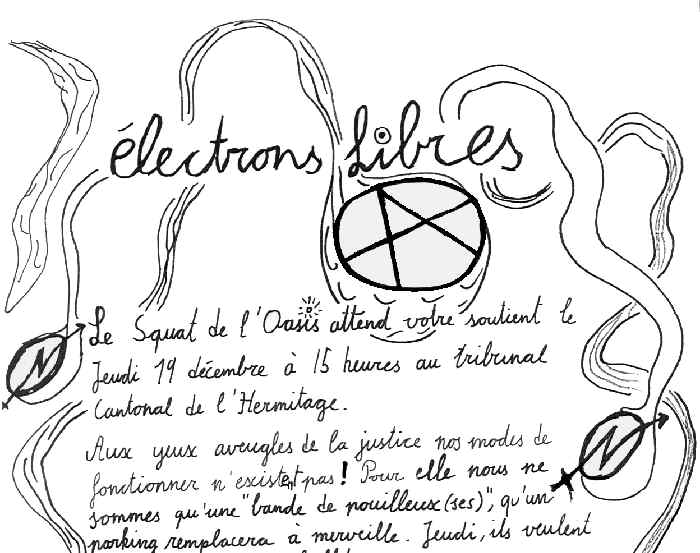 électrons Libres
Le Squat de l'Oasis attend votre soutient le
Jeudi 19 décembre à 15 heures au tribunal
Cantonal de l'Hermitage.
Aux yeux aveugles de la justice nos modes de
fonctionner n'existent pas! Pour elle nous ne
sommes qu'une "bande de pouilleux(ses)", qu'un
parking remplacera à merveille. Jeudi, ils veulent